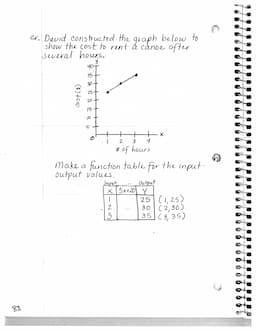 ex. David constructed the graph below to
show the cost to rent a canoe after
several hours.
y
cost ($)
40
35
30
25
20
15
10
5
0
1 2 3 4
x
# of hours
Make a function table for the input-
output values.
Input Output
x y
1 25 (1, 25)
2 30 (2, 30)
3 35 (3, 35)